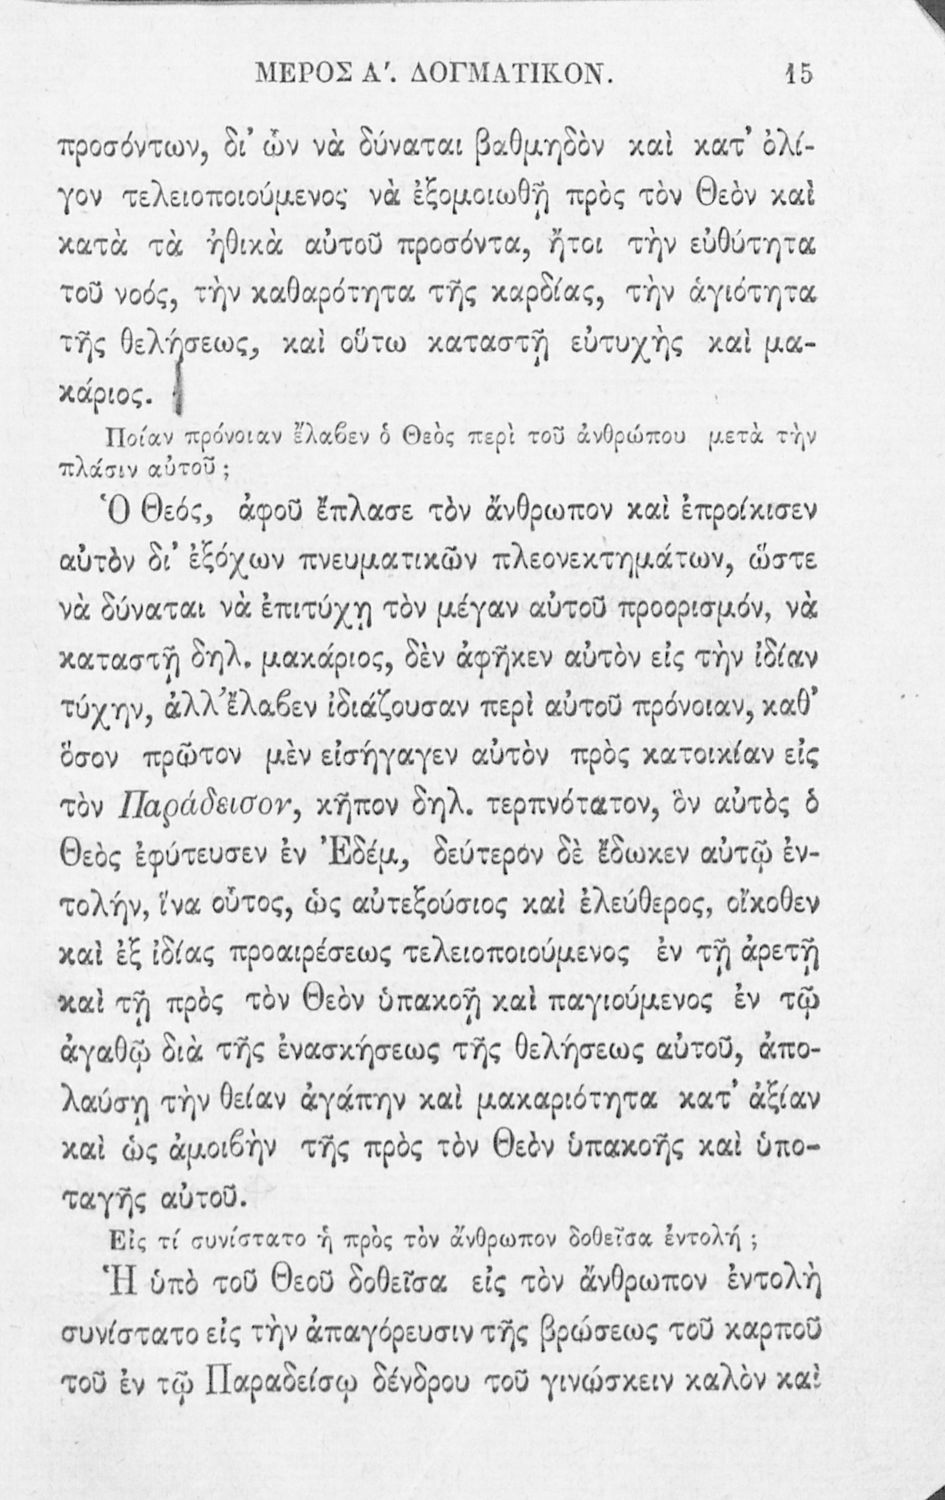 ΜΕΡΟΣ Α'. ΔΟΓΜΑΤΙΚΟΝ. 15
προσόντων, δι' ὧν νὰ δύναται βαθμηδὸν καὶ κατ' ὀλί-
γον τελειοποιούμενος νὰ ἐξομοιωθῇ πρὸς τὸν Θεὸν καὶ
κατὰ τὰ ἠθικὰ αὐτοῦ προσόντα, ἤτοι τὴν εὐθύτητα
τοῦ νοός, τὴν καθαρότητα τῆς καρδίας, τὴν ἁγιότητα
τῆς θελήσεως, καὶ οὕτω καταστῇ εὐτυχὴς καὶ μα-
κάριος.
Ποίαν πρόνοιαν ἔλαβεν ὁ Θεὸς περὶ τοῦ ἀνθρώπου μετὰ τὴν
πλάσιν αὐτοῦ ;
Ὁ Θεός, ἀφοῦ ἔπλασε τὸν ἄνθρωπον καὶ ἐπροίκισεν
αὐτὸν δι' ἐξόχων πνευματικῶν πλεονεκτημάτων, ὥστε
νὰ δύναται νὰ ἐπιτύχῃ τὸν μέγαν αὐτοῦ προορισμόν, νὰ
καταστῇ δηλ. μακάριος, δὲν ἀφῆκεν αὐτὸν εἰς τὴν ἰδίαν
τύχην, ἀλλ' ἔλαβεν ἰδιάζουσαν περὶ αὐτοῦ πρόνοιαν, καθ'
ὅσον πρῶτον μὲν εἰσήγαγεν αὐτὸν πρὸς κατοικίαν εἰς
τὸν Παράδεισον, κῆπον δηλ. τερπνότατον, ὃν αὐτὸς ὁ
Θεὸς ἐφύτευσεν ἐν Ἐδέμ, δεύτερον δὲ ἔδωκεν αὐτῷ ἐν-
τολήν, ἵνα οὗτος, ὡς αὐτεξούσιος καὶ ἐλεύθερος, οἴκοθεν
καὶ ἐξ ἰδίας προαιρέσεως τελειοποιούμενος ἐν τῇ ἀρετῇ
καὶ τῇ πρὸς τὸν Θεὸν ὑπακοῇ καὶ παγιούμενος ἐν τῷ
ἀγαθῷ διὰ τῆς ἐνασκήσεως τῆς θελήσεως αὐτοῦ, ἀπο-
λαύσῃ τὴν θείαν ἀγάπην καὶ μακαριότητα κατ' ἀξίαν
καὶ ὡς ἀμοιβὴν τῆς πρὸς τὸν Θεὸν ὑπακοῆς καὶ ὑπο-
ταγῆς αὐτοῦ.
Εἰς τί συνίστατο ἡ πρὸς τὸν ἄνθρωπον δοθεῖσα ἐντολή ;
Ἡ ὑπὸ τοῦ Θεοῦ δοθεῖσα εἰς τὸν ἄνθρωπον ἐντολὴ
συνίστατο εἰς τὴν ἀπαγόρευσιν τῆς βρώσεως τοῦ καρποῦ
τοῦ ἐν τῷ Παραδείσῳ δένδρου τοῦ γινώσκειν καλὸν καὶ